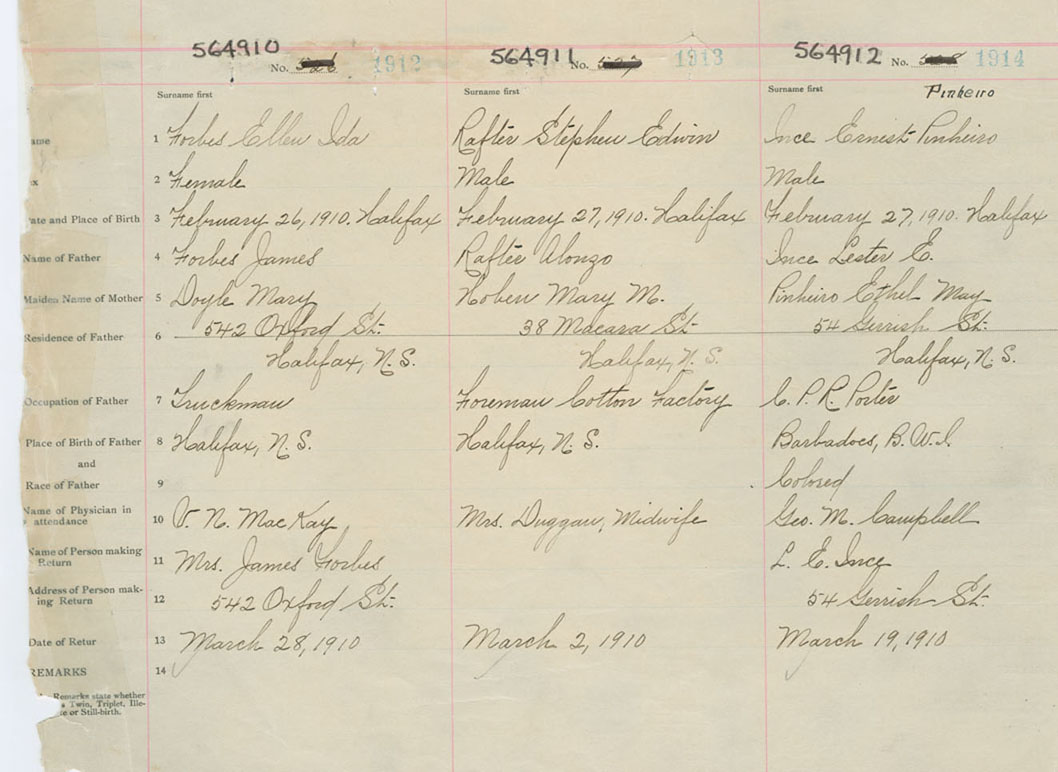 564910 No. 1912 564911 No. 1913 564912 No. 1914
Surname first Surname first Surname first Pinheiro
ame 1 Forbes Ellen Ida Rafter Stephen Edwin Ince Ernest Pinheiro
x 2 Female Male Male
ate and Place of Birth 3 February 26, 1910. Halifax February 27, 1910. Halifax February 27, 1910. Halifax
Name of Father 4 Forbes James Rafter Alonzo Ince Lester E.
Maiden Name of Mother 5 Doyle Mary Hoben Mary M. Pinheiro Ethel May
Residence of Father 6 542 Oxford St. 38 Macara St. 54 Gerrish St.
Halifax, N.S. Halifax, N.S. Halifax, N.S.
Occupation of Father 7 Truckman Foreman Cotton Factory C. P. R. Porter
Place of Birth of Father 8 Halifax, N.S. Halifax, N.S. Barbadoes, B.W.I.
and
Race of Father 9 Colored
Name of Physician in
attendance 10 V. N. MacKay Mrs. Duggan, Midwife Geo. M. Campbell
Name of Person making
Return 11 Mrs. James Forbes L. E. Ince
Address of Person mak-
ing Return 12 542 Oxford St. 54 Gerrish St.
Date of Retur 13 March 28, 1910 March 2, 1910 March 19, 1910
REMARKS 14
Remarks state whether
a Twin, Triplet, Ille-
te or Still-birth.